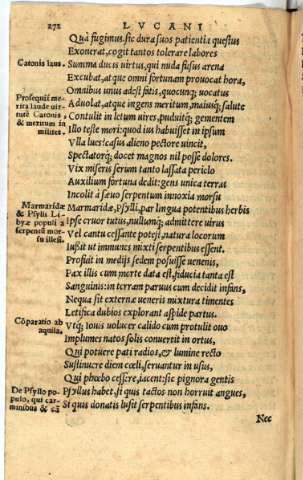 272 LVCANI
Quà fugimus. sic dura suos patientia questus
Exonerat, cogit tantos tolerare labores
Catonis laus.
Summa ducis uirtus, qui nuda fusus arena
Excubat, atque omni fortunam prouocat hora,
Omnibus unus adest fatis, quocunq; uocatus
Prosequit me
rita laude uir-
tutē Catonis
& meritum in
milites.
Aduolat, atque ingens meritum, maiusq; salute
Contulit in letum uires, puduitq; gementem
Illo teste mori: quod ius habuisset in ipsum
Vlla lues? casus alieno pectore uincit,
Spectatorq; docet magnos nil posse dolores.
Vix miseris serum tanto lassata periclo
Auxilium fortuna dedit: gens unica terras
Incolit à sæuo serpentum innoxia morsu
Marmaridæ
& Psylli Li-
byæ populi à
serpentū mor-
su illesi.
Marmaridæ, Psylli, par lingua potentibus herbis
Ipse cruor tutus, nullumq; admittere uirus
Vel cantu cessante potest, natura locorum
Iussit ut immunes mixti serpentibus essent.
Profuit in medijs sedem posuisse uenenis,
Pax illis cum morte data est, fiducia tanta est
Sanguinis: in terram paruus cum decidit infans,
Nequa sit externæ ueneris mixtura timentes
Letifica dubios explorant aspide partus.
Cōparatio ab
aquila.
Vtq; Iouis uolucer calido cum protulit ouo
Implumes natos solis conuertit in ortus,
Qui potuere pati radios, & lumine recto
Sustinuere diem cœli, seruantur in usus,
Qui phœbo cessere, iacent: sic pignora gentis
De Psyllo po-
pulo, qui car-
minibus & cā
Psyllus habet, si quis tactos non horruit angues,
Si quis donatis lusit serpentibus infans.
Nec